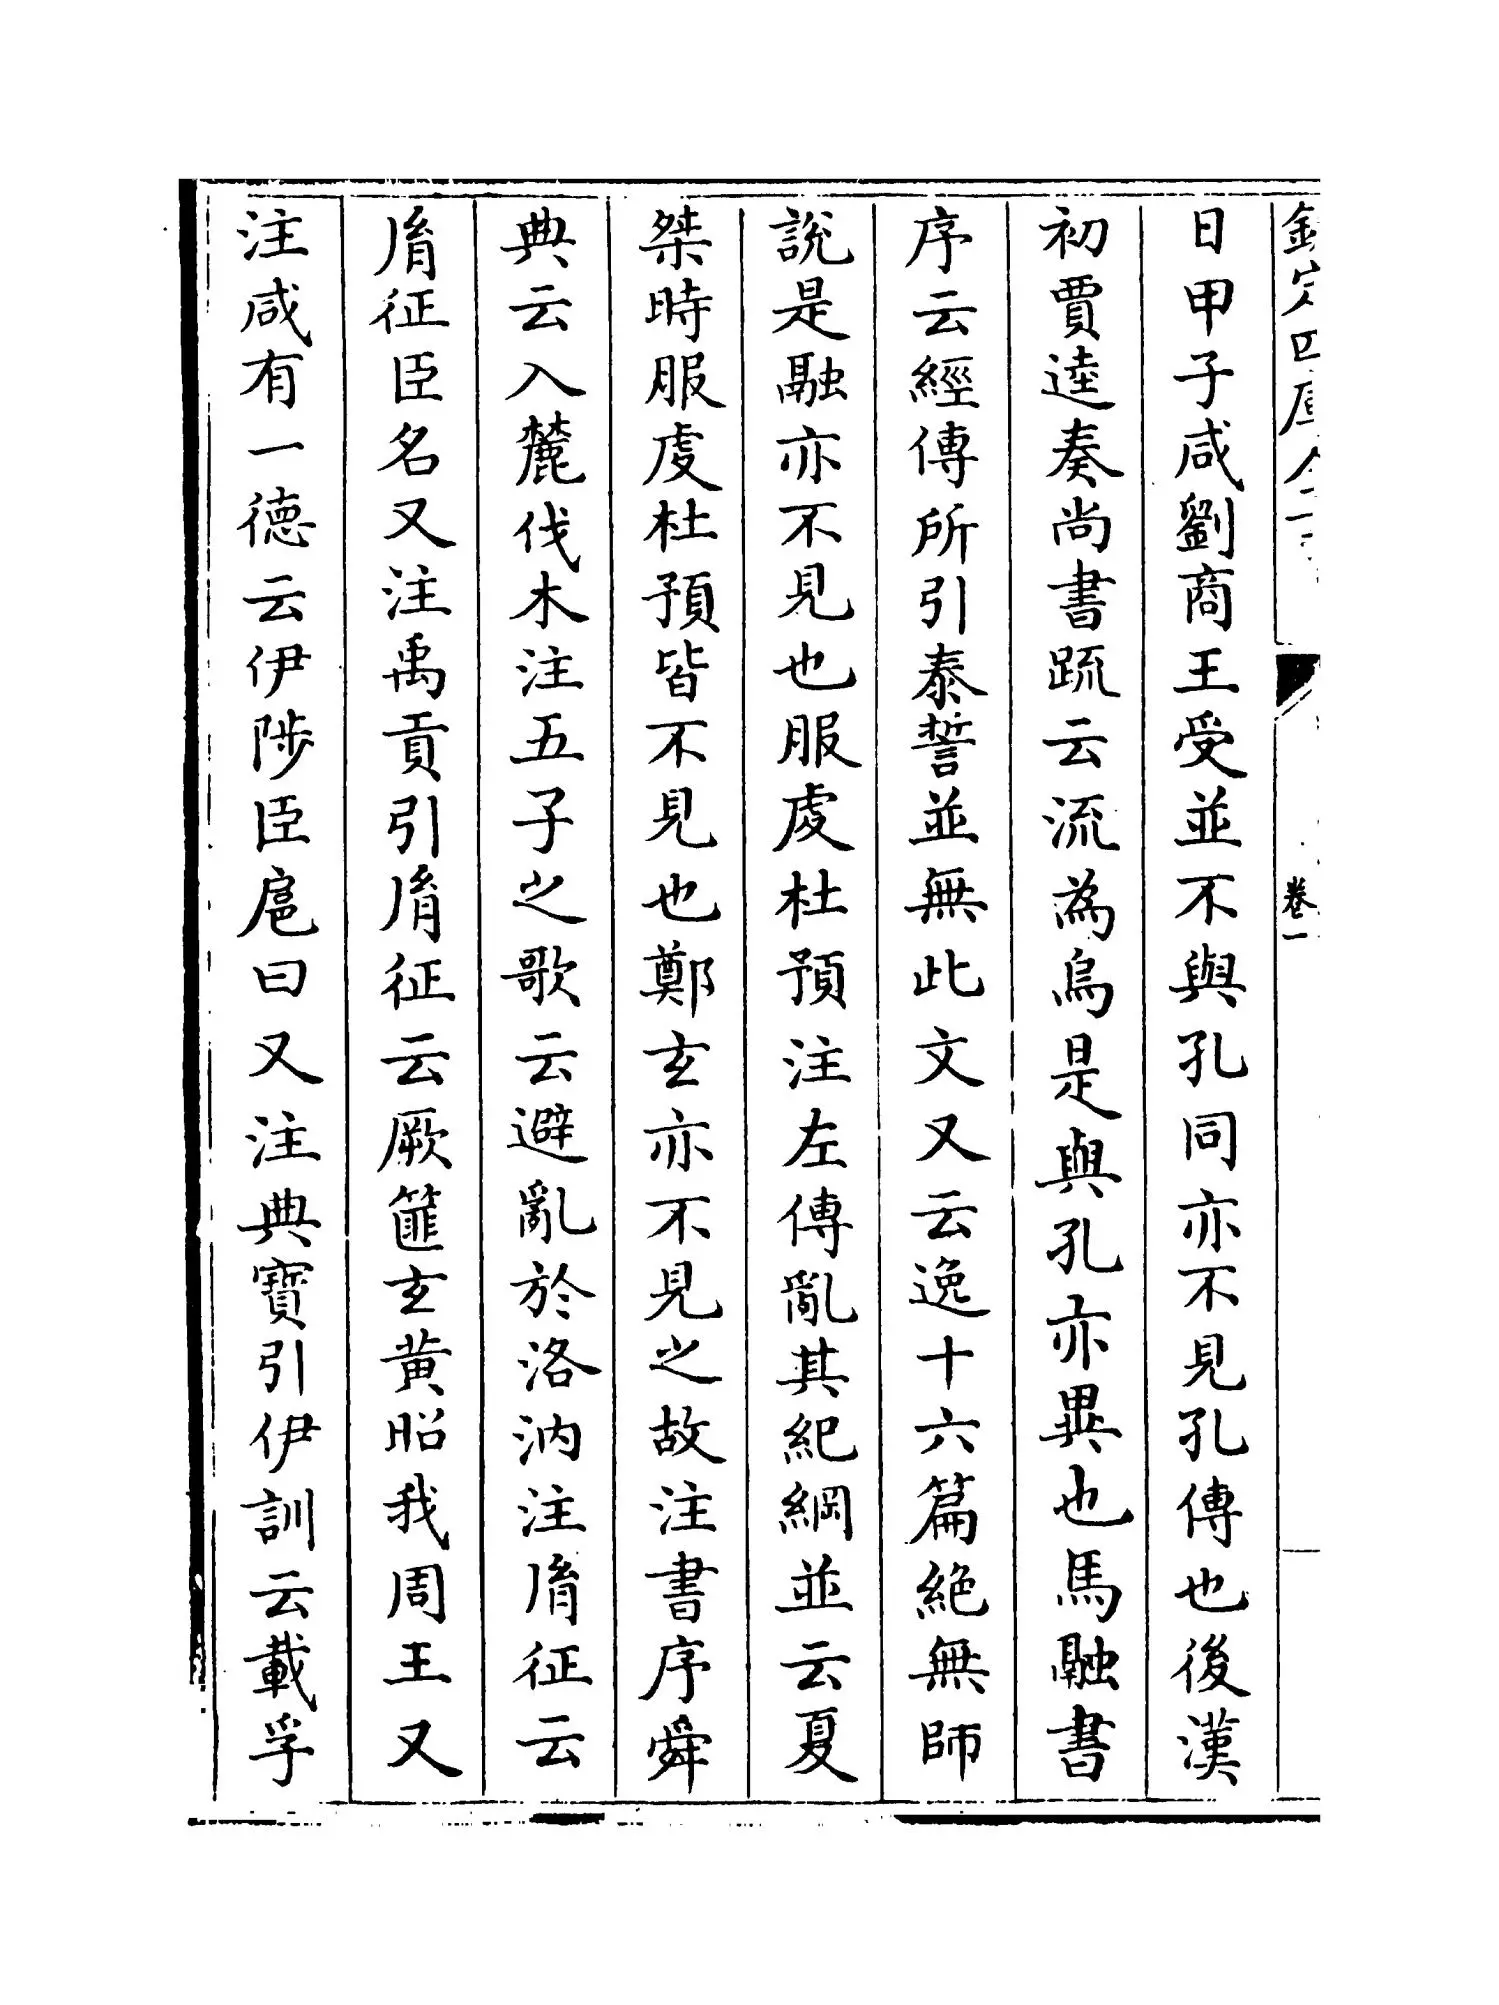 欽定四庫全書
卷一
日甲子咸劉商王受並不與孔同亦不見孔傳也後漢
初賈逵奏尚書疏云流為烏是與孔亦異也馬融書
序云經傳所引泰誓並無此文又云逸十六篇絕無師
說是融亦不見也服虔杜預注左傳亂其紀綱並云夏
桀時服虔杜預皆不見也鄭玄亦不見之故注書序舜
典云入麓伐木注五子之歌云避亂於洛汭注胤征云
胤征臣名又注禹貢引胤征云厥篚玄黃昭我周王又
注咸有一德云伊陟臣扈曰又注典寶引伊訓云載孚